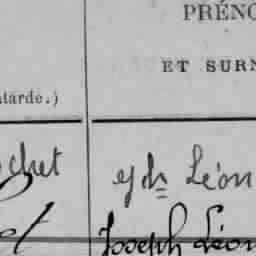 PRÉNO
ET SURN
atarde.)
chet Léon
et Joseph Léon